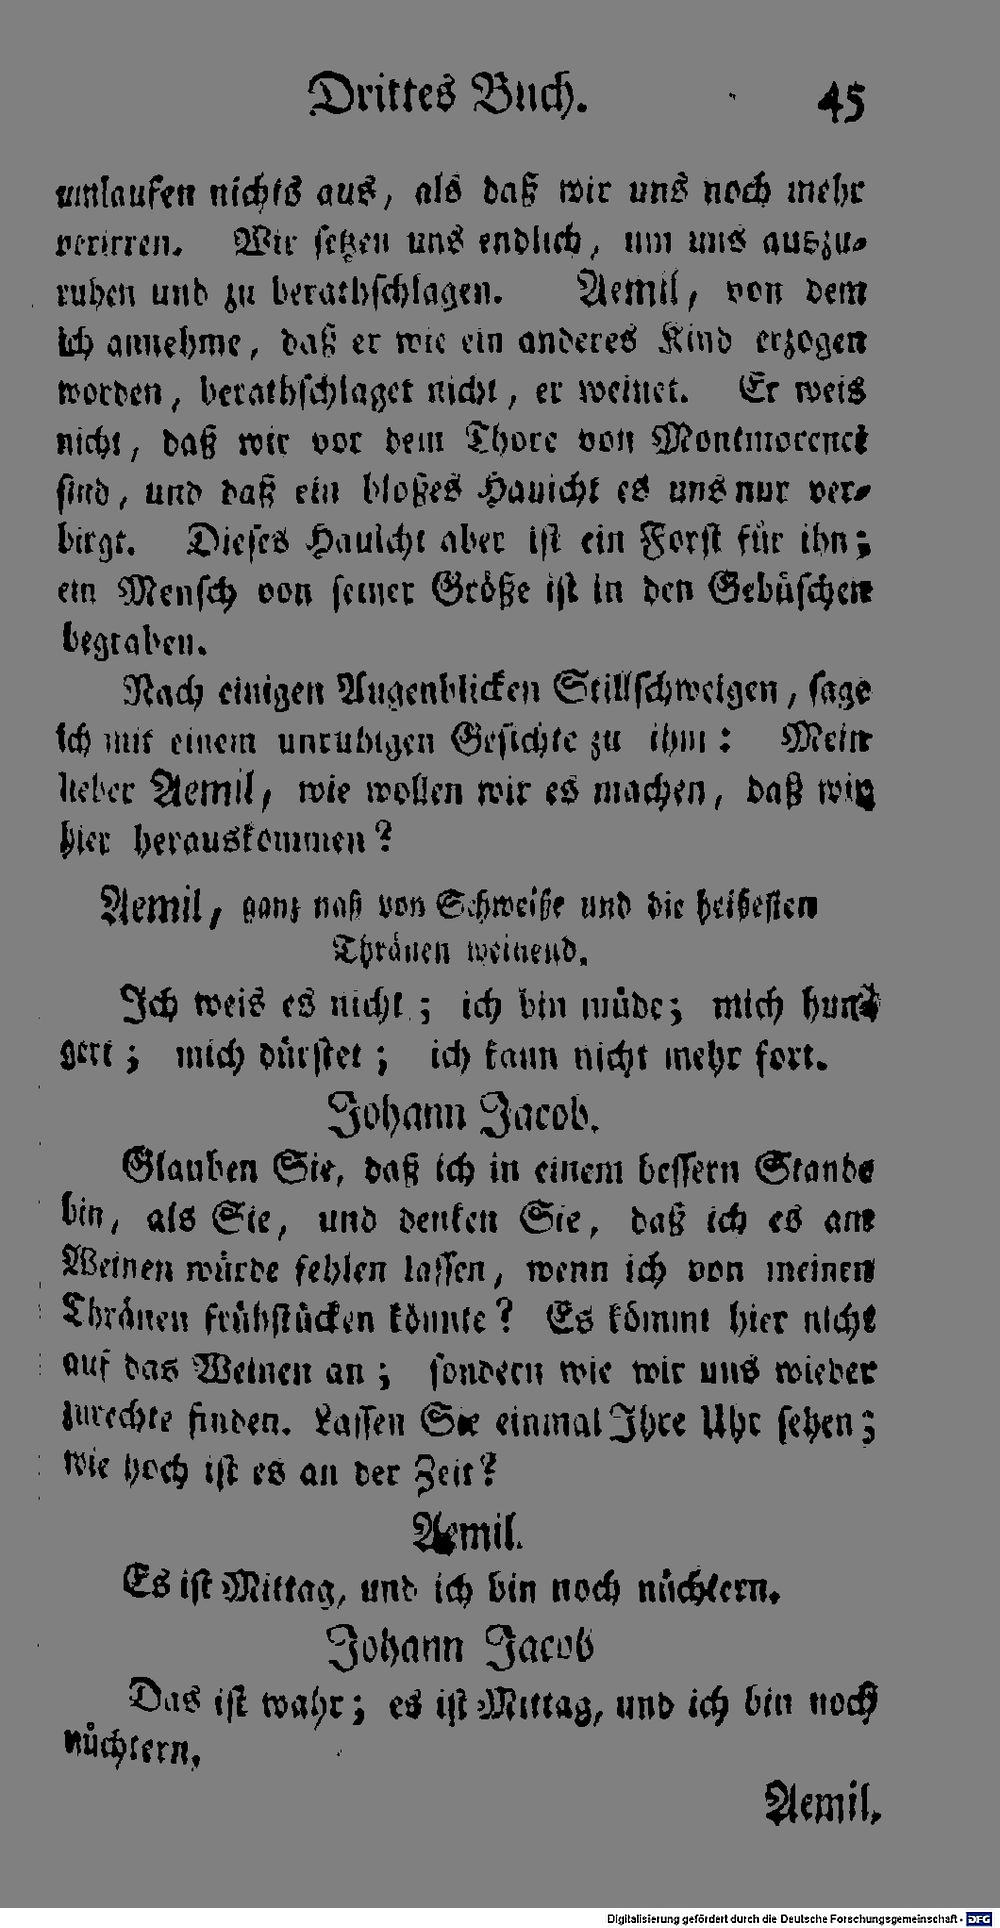 Drittes Buch. 45
umlaufen nichts aus, als daß wir uns noch mehr
verirren. Wir setzen uns endlich, um uns auszu-
ruhen und zu berathschlagen. Aemil, von dem
ich annehme, daß er wie ein anderes Kind erzogen
worden, berathschlaget nicht, er weinet. Er weis
nicht, daß wir vor dem Thore von Montmorenci
sind, und daß ein bloßes Hauicht es uns nur ver-
birgt. Dieses Hauicht aber ist ein Forst für ihn;
ein Mensch von seiner Größe ist in den Gebüschen
begraben.
Nach einigen Augenblicken Stillschweigen, sage
ich mit einem unruhigen Gesichte zu ihm: Mein
lieber Aemil, wie wollen wir es machen, daß wir
hier herauskommen?
Aemil, ganz naß von Schweiße und die heißesten
Thränen weinend.
Ich weis es nicht; ich bin müde; mich hun-
gert; mich dürstet; ich kann nicht mehr fort.
Johann Jacob.
Glauben Sie, daß ich in einem bessern Stande
bin, als Sie, und denken Sie, daß ich es am
Weinen würde fehlen lassen, wenn ich von meinen
Thränen frühstücken könnte? Es kömmt hier nicht
auf das Weinen an; sondern wie wir uns wieder
zurechte finden. Lassen Sie einmal Ihre Uhr sehen;
wie hoch ist es an der Zeit?
Aemil.
Es ist Mittag, und ich bin noch nüchtern.
Johann Jacob
Das ist wahr; es ist Mittag, und ich bin noch
nüchtern.
Aemil.
Digitalisierung gefördert durch die Deutsche Forschungsgemeinschaft - DFG